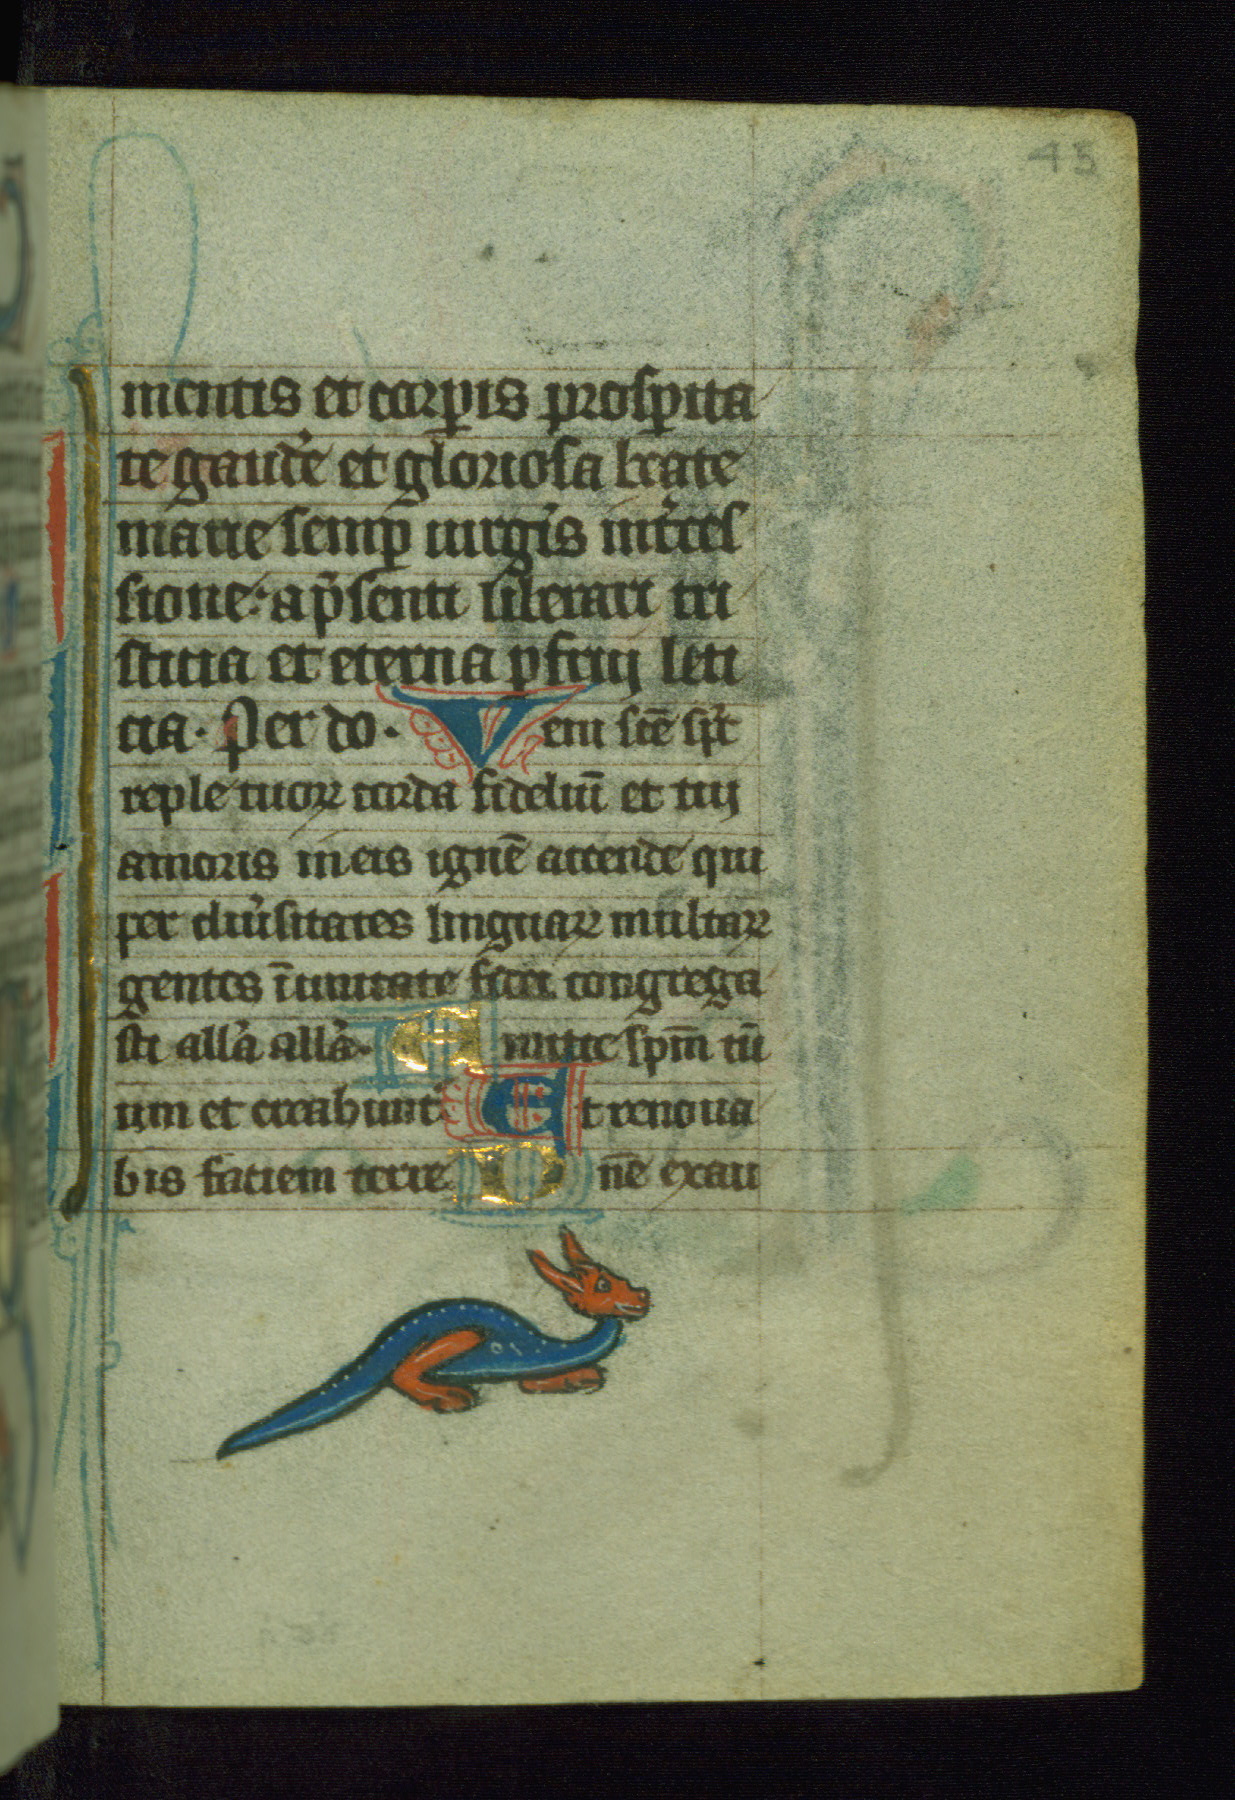 45
mentis et corp̲is prosp̲ita
te gaud̕e et gloriosa beate
marie semp̲ uirgīs int̕ces
sione: ap̄senti liberari tri
sticia et eterna p̲frui leti
cia. Per do. Veni scē sp̄c
reple tuoꝝ corda fideliū et tui
amoris in eis ignē accende qui
per diu̕sitates linguaꝝ multaꝝ
gentes ī unitate fidei congrega
sti all̕a all̕a. Emitte spm̄ tū
um et creabunt̕ Et renoua
bis faciem terre Dn̄e exau